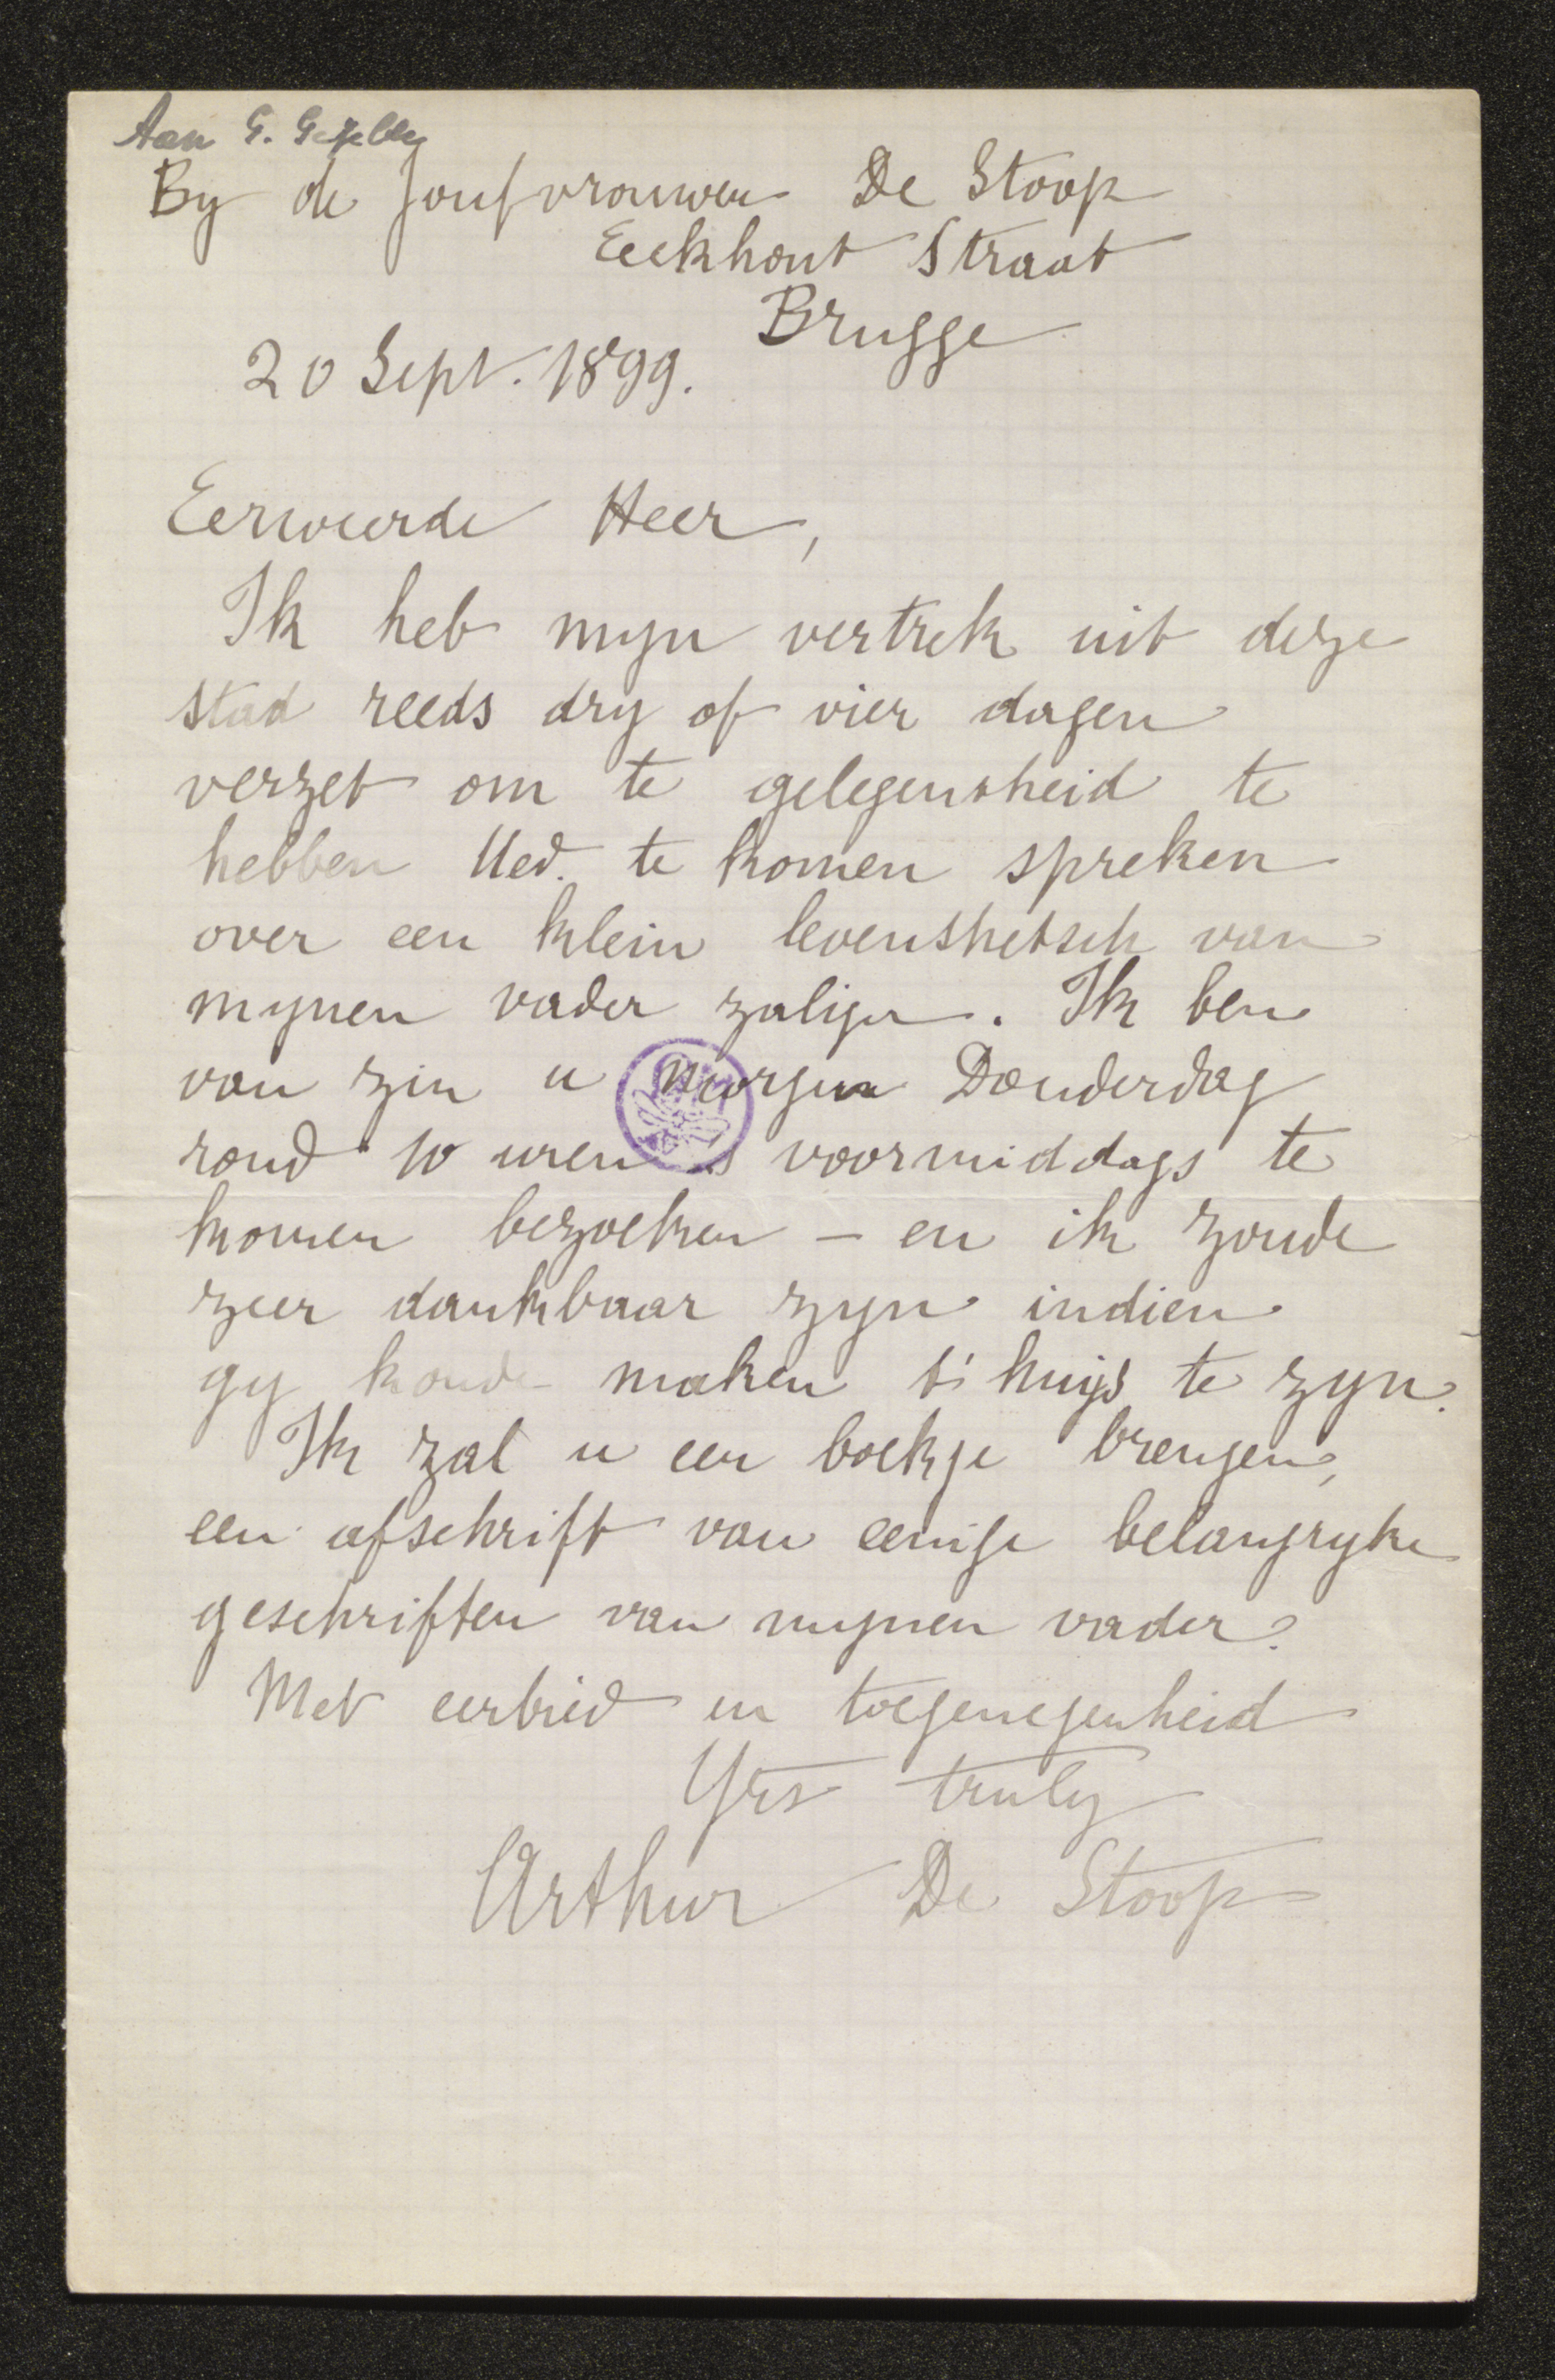 Aan G. Gezelle
By de Joufvrouwen De Stoop
Eeckhout Straat
Brugge
20 Sept. 1899.
Eerweerde Heer,
Ik heb myn vertrek uit deze
stad reeds dry of vier dagen
verzet om te gelegensheid te
hebben Ued. te komen spreken
over een klein levenshetsch van
mynen vader zaliger. Ik ben
van zin u morgen Donderdag
rond 10 uren 's voormiddags te
komen bezoeken – en ik zoude
zeer dankbaar zyn indien
gy konde maken t'huijs te zyn.
Ik zal u een boekje brengen,
een afschrift van eenige belangryke
geschriften van mynen vader.
Met eerbied en toegenegenheid
Yrs truly
Arthur De Stoop